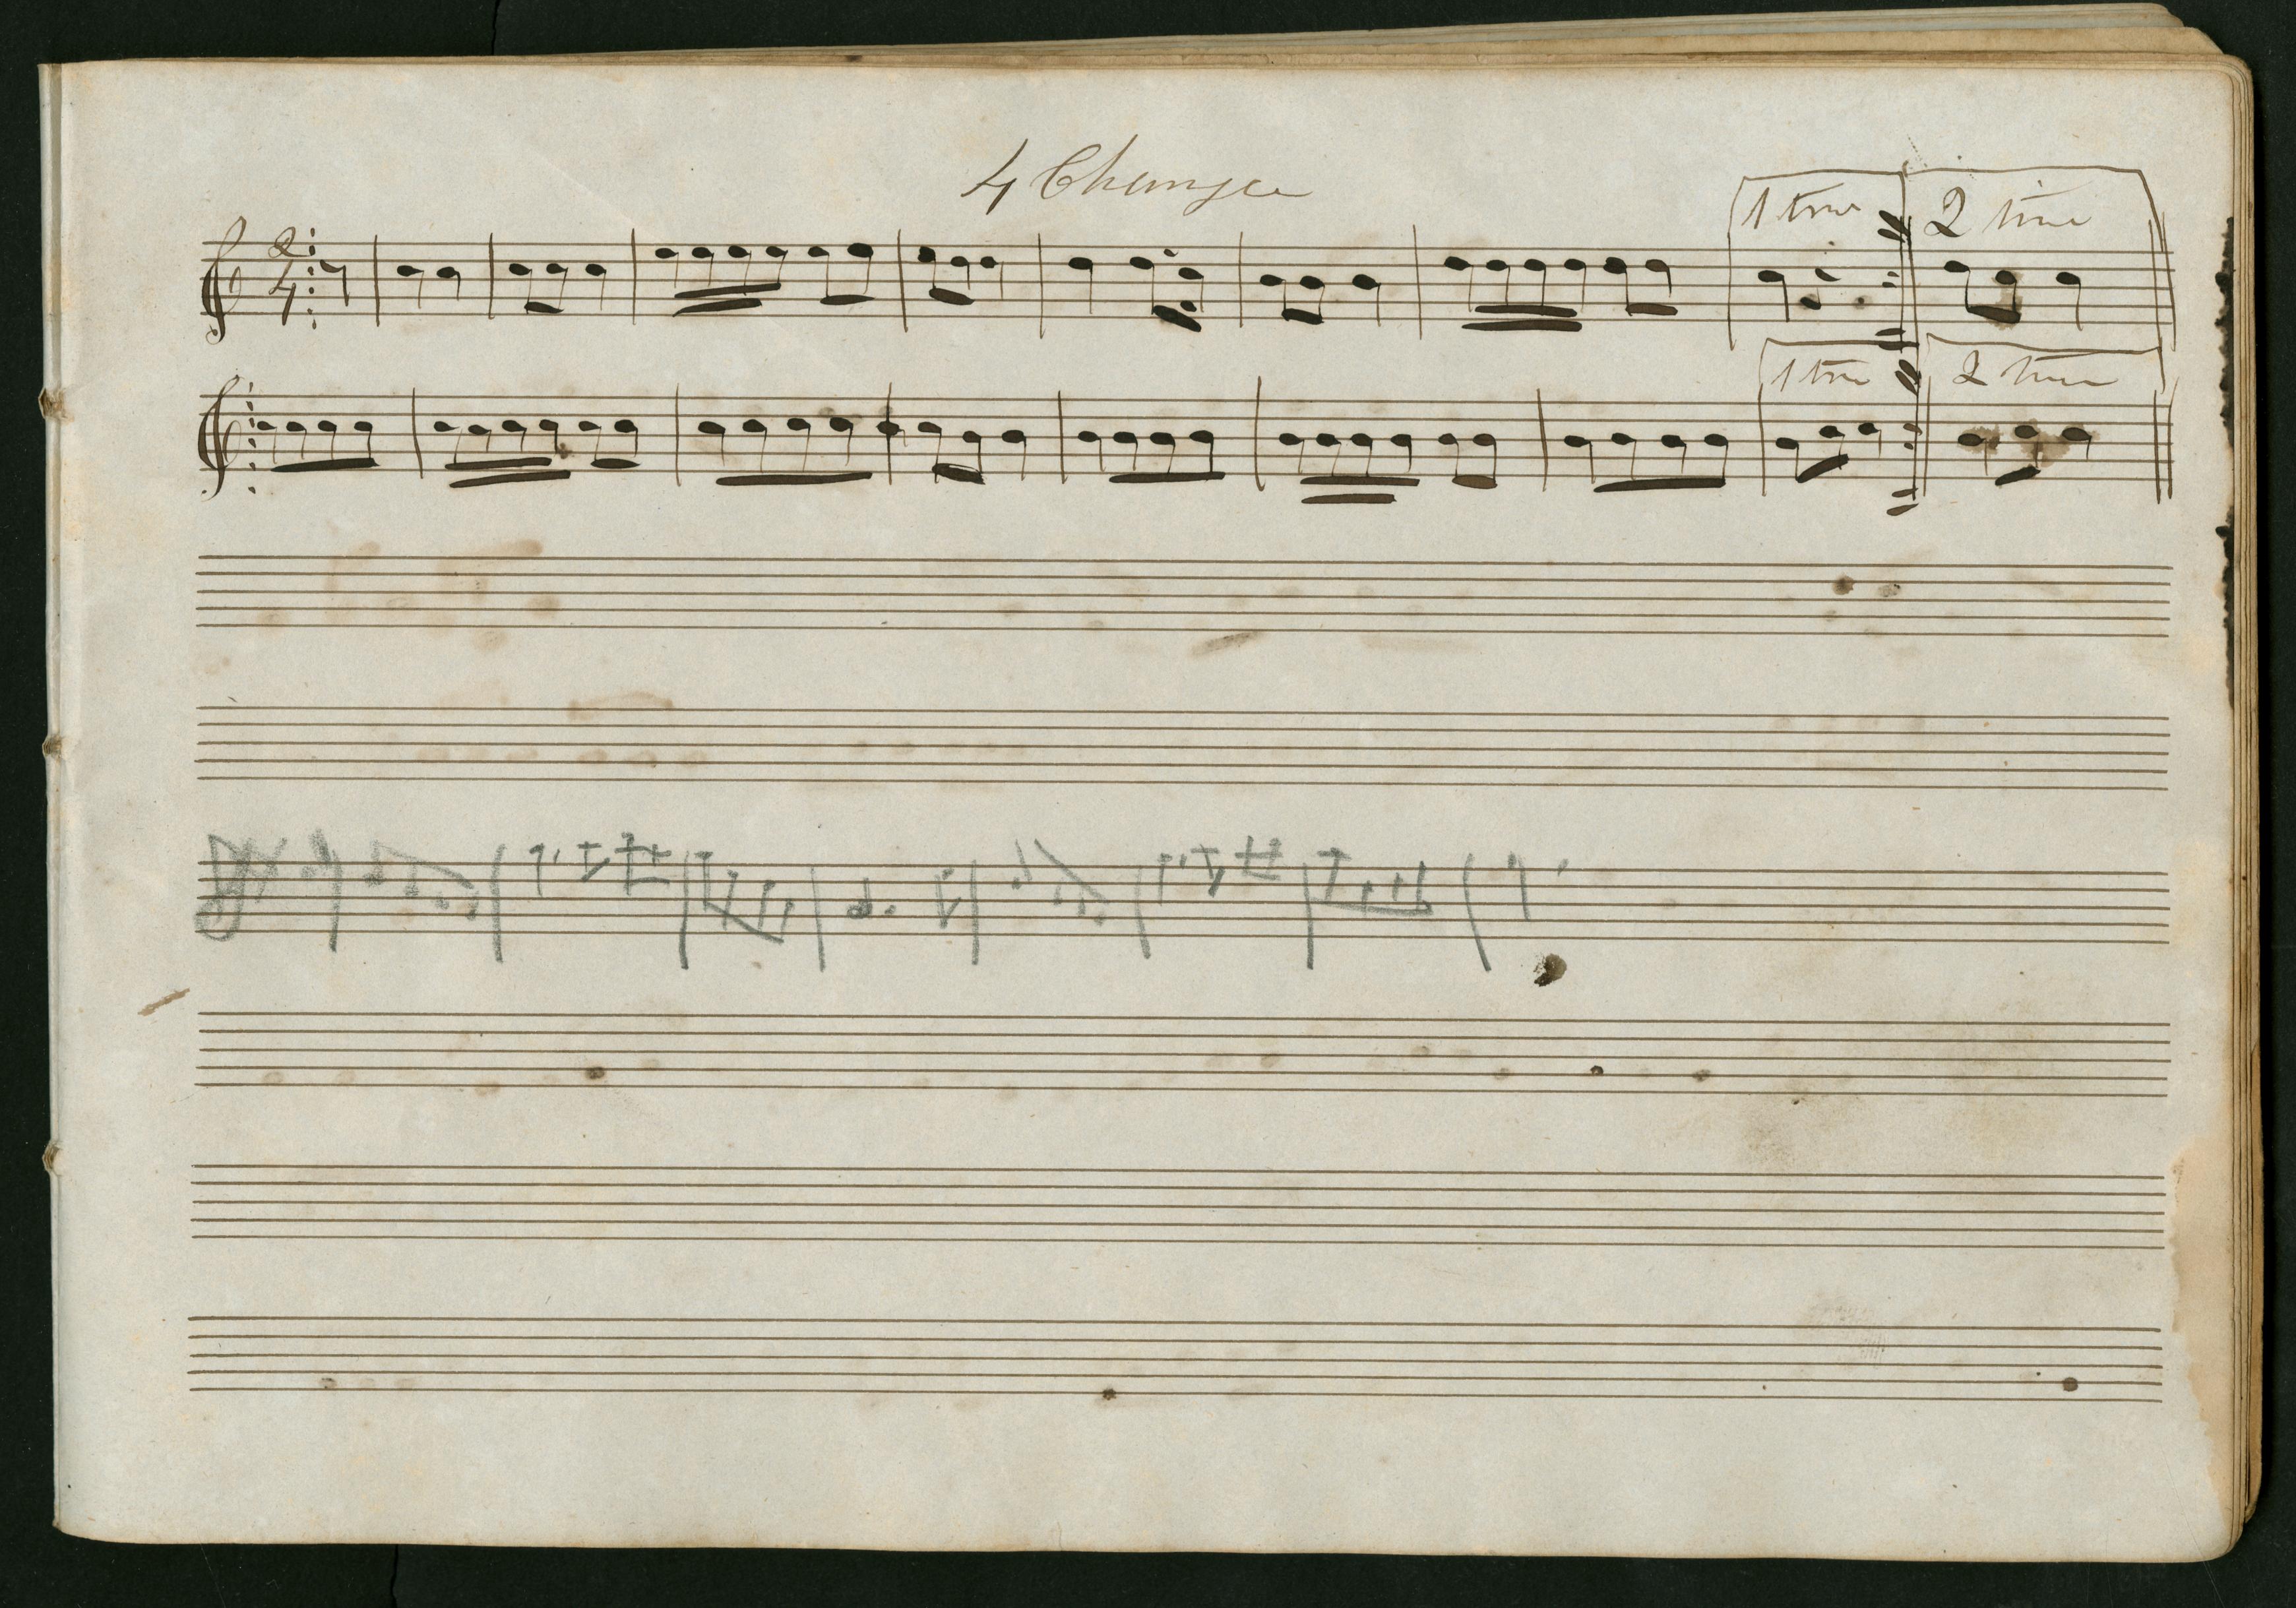 4 Change
2
4
1 time
2 time
1 time
2 time